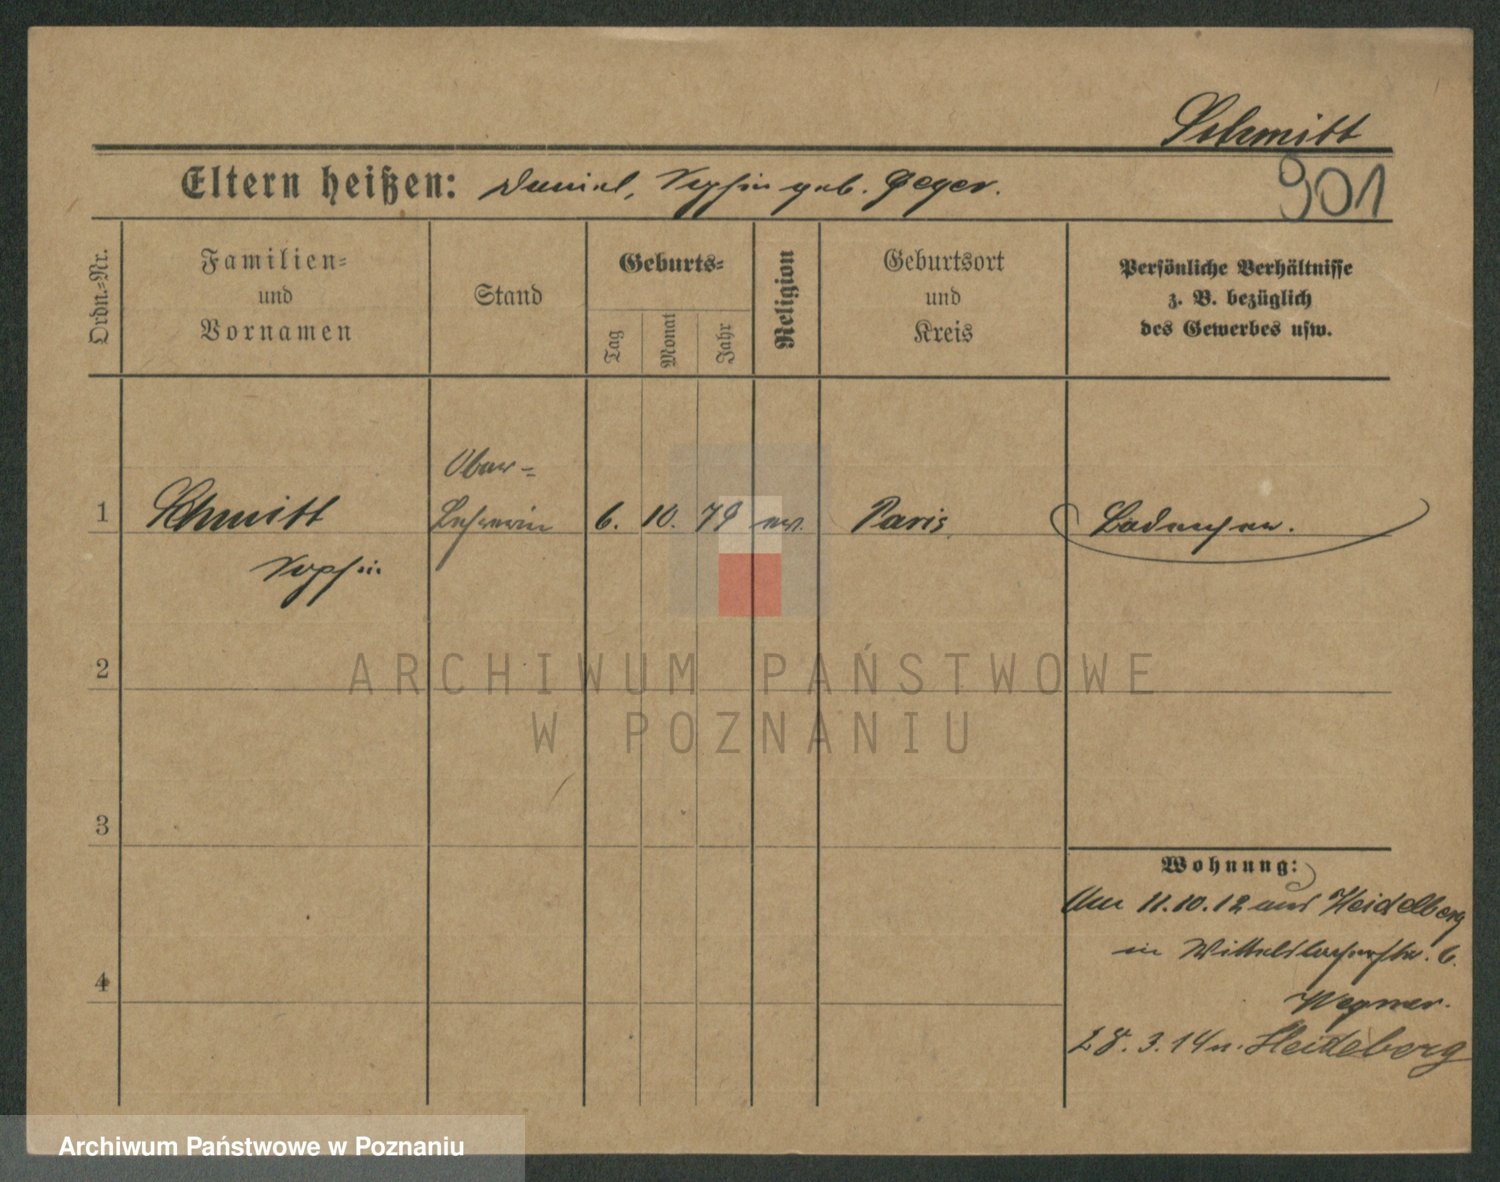 Schmitt
Eltern heißen: Daniel, Sophie geb. Geyer.
901
Ordn.-Nr.
Familien- und Vornamen
Stand
Geburts-
Tag
Monat
Jahr
Religion
Geburtsort und Kreis
Persönliche Verhältnisse z. B. bezüglich des Gewerbes usw.
Ober-
1 Schmitt Lehrerin 6. 10. 79 ev. Paris Badenserin.
Sophie
2
ARCHIWUM PAŃSTWOWE
W POZNANIU
3
4
Wohnung:
Am 11.10.12 aus Heidelberg
in Wittelsbacherstr. 6.
Wegner.
28.3.14 n. Heidelberg
Archiwum Państwowe w Poznaniu